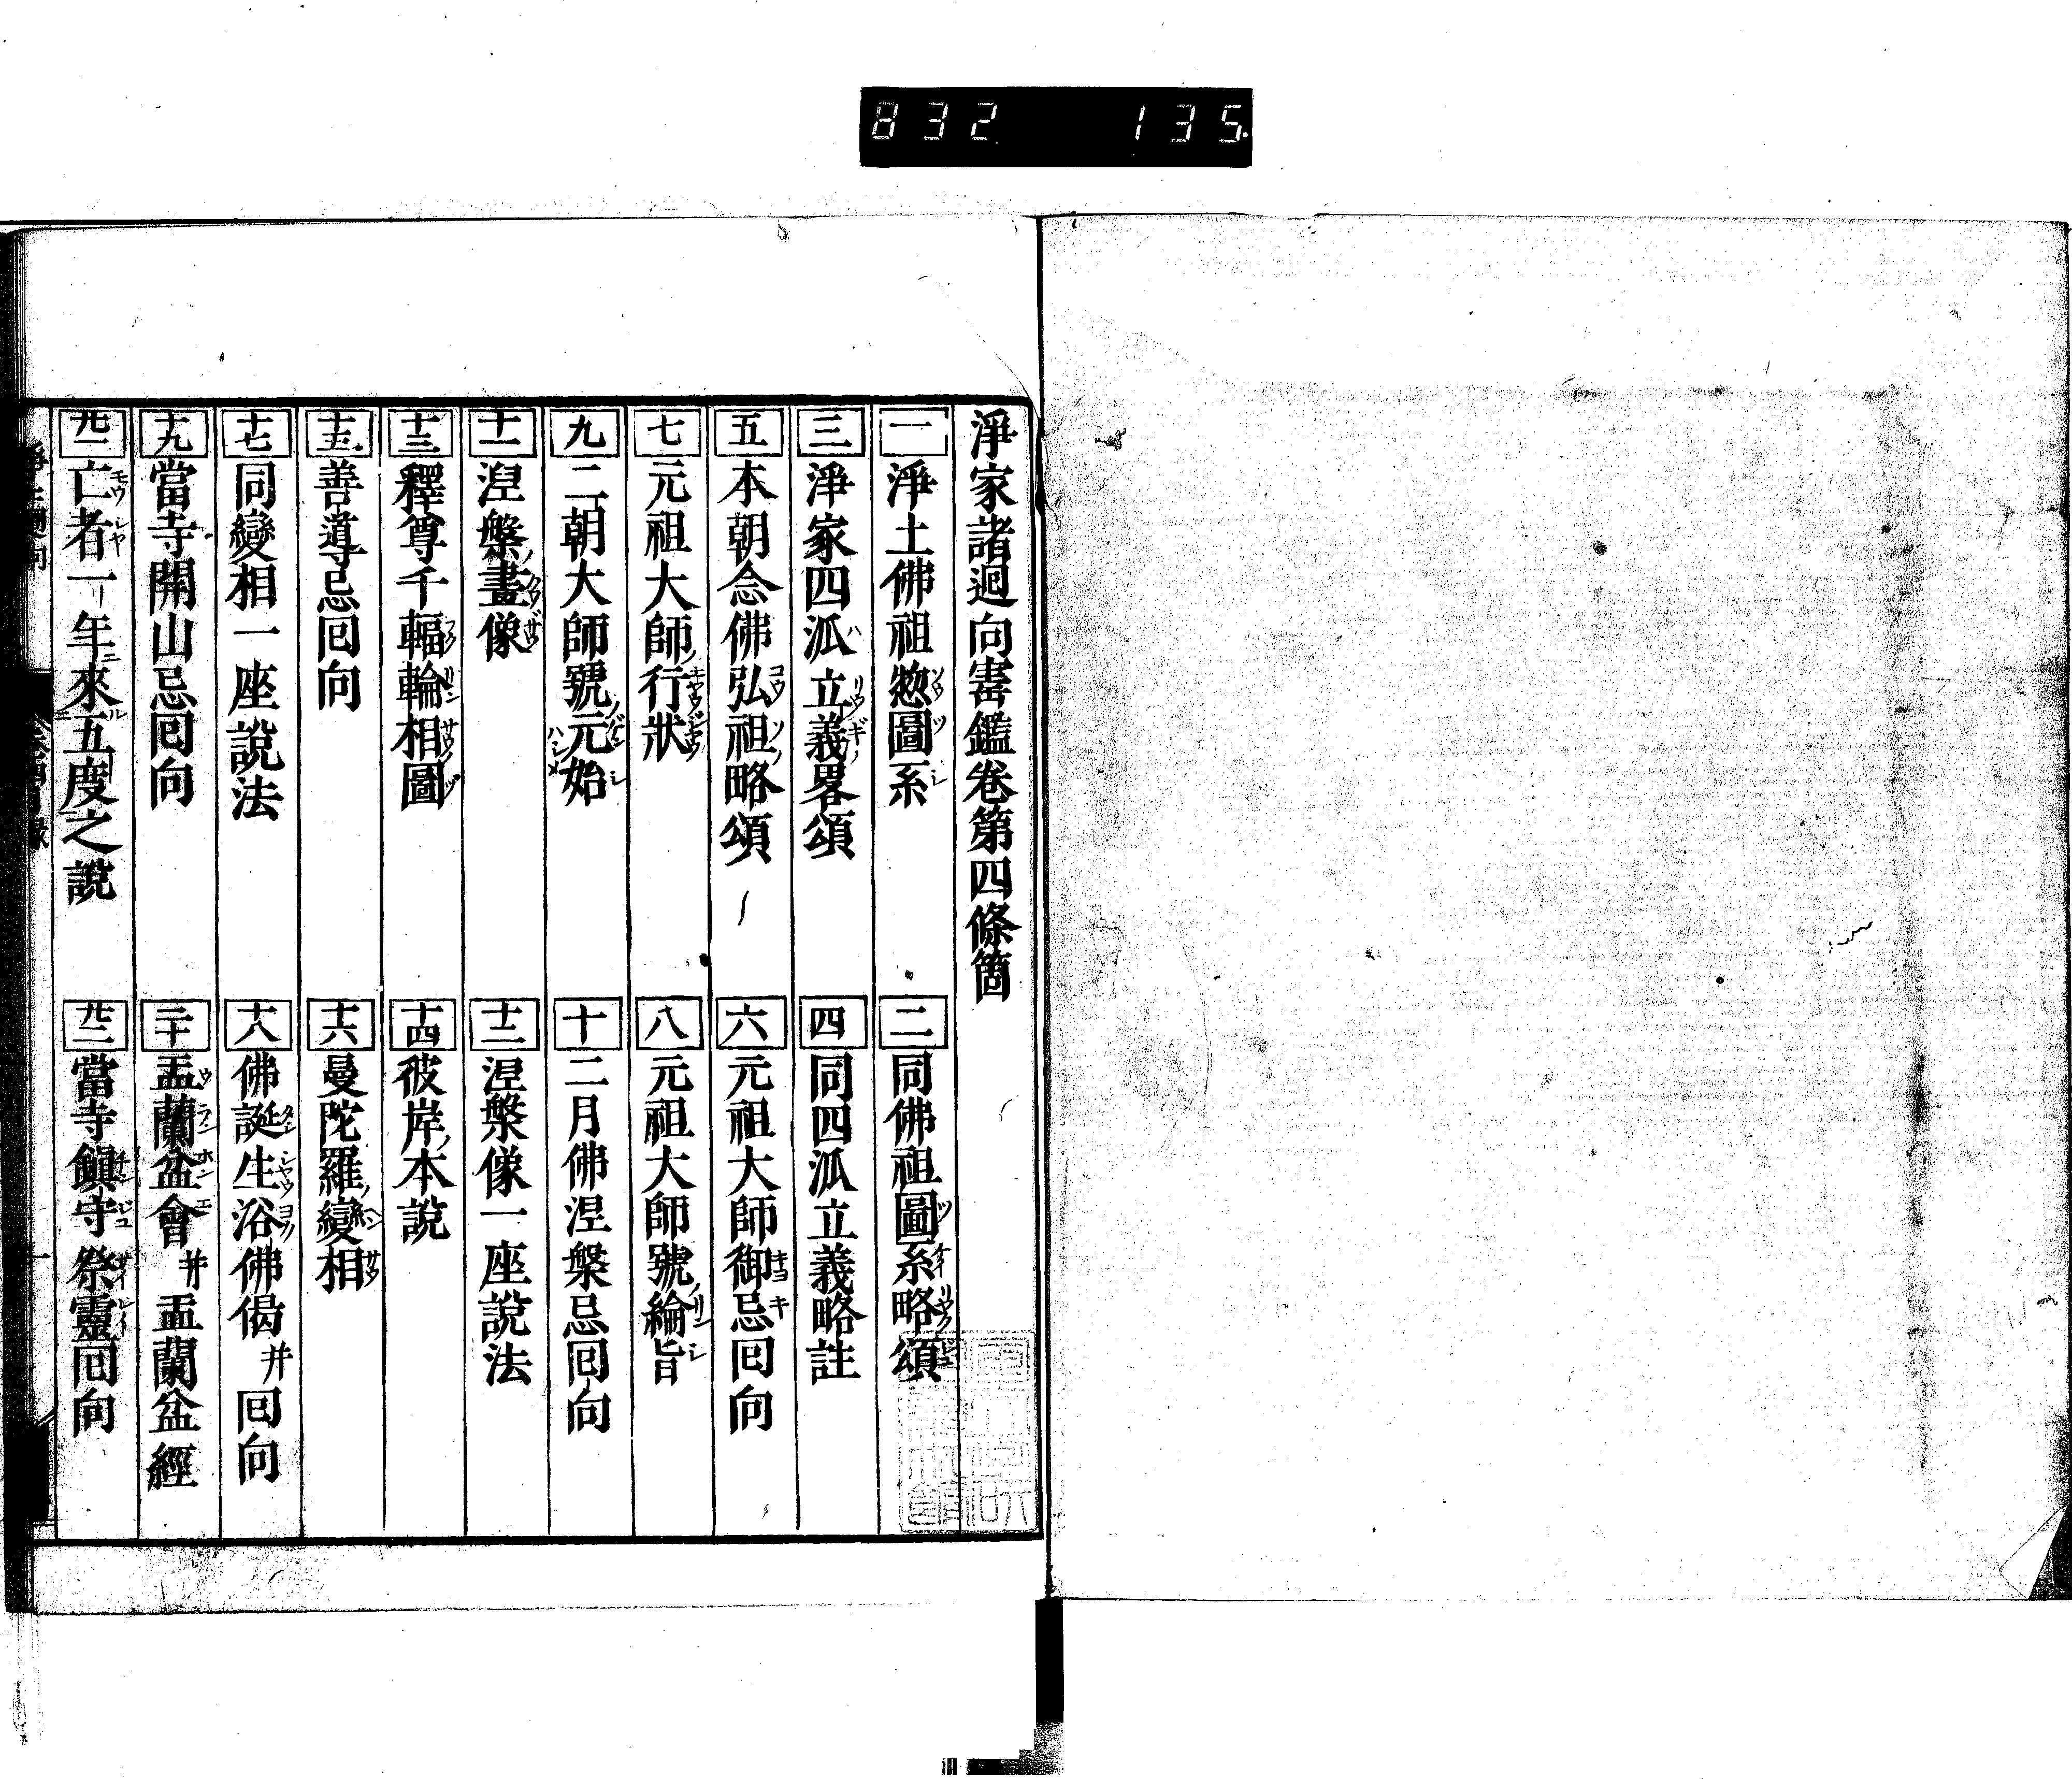 832 135
淨家諸迴向寚鑑卷第四條箇
一 淨土佛祖惣圖系
二 同佛祖圖系略頌
三 淨家四派立義畧頌
四 同四派立義略註
五 本朝念佛弘祖略頌
六 元祖大師御忌囘向
七 元祖大師行狀
八 元祖大師號綸旨
九 二朝大師號元始
十 二月佛涅槃忌囘向
十一 涅槃畫像
十二 涅槃像一座說法
十三 釋尊千輻輪相圖
十四 彼岸本說
十五 善導忌囘向
十六 曼陀羅變相
十七 同變相一座說法
十八 佛誕生浴佛偈并囘向
十九 當寺開山忌囘向
二十 盂蘭盆會并盂蘭盆經
廿一 亡者一年來五度之說
廿二 當寺鎮守祭靈囘向